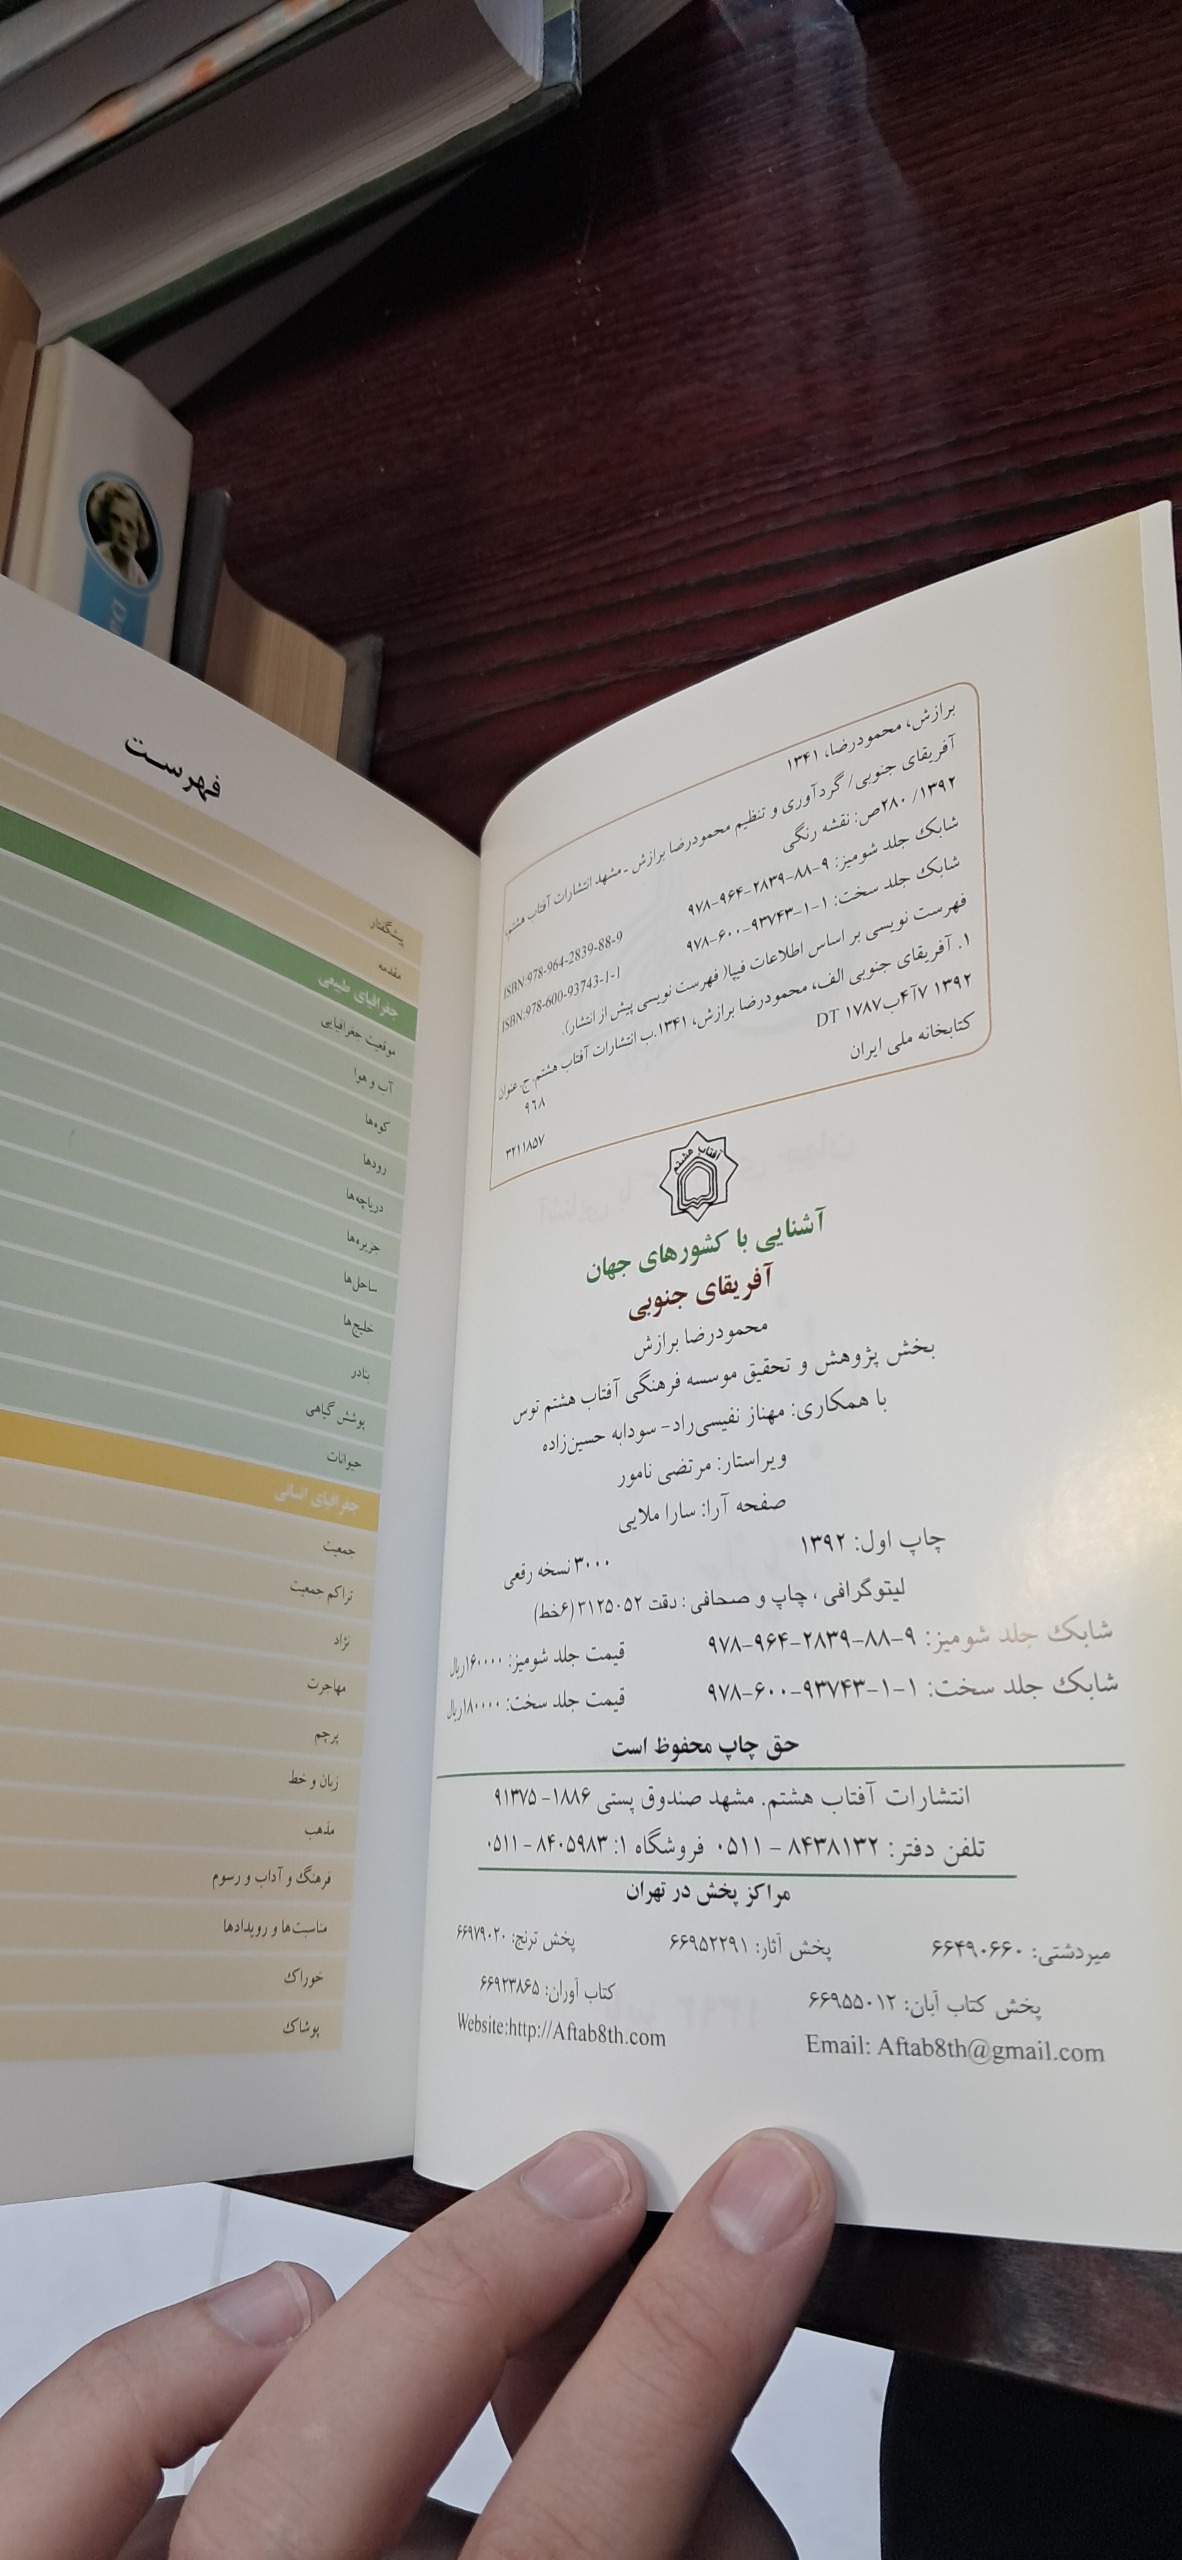 برازش، محمودرضا، ۱۳۴۱
آفریقای جنوبی/ گردآوری و تنظیم محمودرضا برازش - مشهد انتشارات آفتاب هشتم،
۱۳۹۲/ ۲۸۰ص: نقشه رنگی
شابک جلد شومیز: ۹-۸۸-۲۸۳۹-۹۶۴-۹۷۸ ISBN:978-964-2839-88-9
شابک جلد سخت: ۱-۱-۹۳۷۴۳-۶۰۰-۹۷۸ ISBN:978-600-93743-1-1
فهرست نویسی بر اساس اطلاعات فیپا( فهرست نویسی پیش از انتشار).
۱. آفریقای جنوبی الف، محمودرضا برازش، ۱۳۴۱.ب انتشارات آفتاب هشتم. ج. عنوان
۱۳۹۲ ۷آ۴ب/ DT ۱۷۸۷ ۹۶۸
کتابخانه ملی ایران ۳۲۱۱۸۵۷
آفتاب هشتم
آشنایی با کشورهای جهان
آفریقای جنوبی
محمودرضا برازش
بخش پژوهش و تحقیق موسسه فرهنگی آفتاب هشتم توس
با همکاری: مهناز نفیسی‌راد- سودابه حسین‌زاده
ویراستار: مرتضی نامور
صفحه آرا: سارا ملایی
چاپ اول: ۱۳۹۲ ۳۰۰۰ نسخه رقعی
لیتوگرافی ، چاپ و صحافی : دقت ۳۱۲۵۰۵۲ (۶خط)
شابک جلد شومیز: ۹-۸۸-۲۸۳۹-۹۶۴-۹۷۸ قیمت جلد شومیز: ۱۶۰۰۰۰ریال
شابک جلد سخت: ۱-۱-۹۳۷۴۳-۶۰۰-۹۷۸ قیمت جلد سخت: ۱۸۰۰۰۰ریال
حق چاپ محفوظ است
انتشارات آفتاب هشتم. مشهد صندوق پستی ۱۸۸۶- ۹۱۳۷۵
تلفن دفتر: ۸۴۳۸۱۳۲ - ۰۵۱۱ فروشگاه ۱: ۸۴۰۵۹۸۳ - ۰۵۱۱
مراکز پخش در تهران
میردشتی: ۶۶۴۹۰۶۶۰ پخش آثار: ۶۶۹۵۲۲۹۱ پخش ترنج: ۶۶۹۷۹۰۲۰
پخش کتاب آبان: ۶۶۹۵۵۰۱۲ کتاب آوران: ۶۶۹۲۳۸۶۵
Website:http://Aftab8th.com Email: Aftab8th@gmail.com
فهرست
پیشگفتار
مقدمه
جغرافیای طبیعی
موقعیت جغرافیایی
آب و هوا
کوه‌ها
رودها
دریاچه‌ها
جزیره‌ها
ساحل‌ها
خلیج‌ها
بنادر
پوشش گیاهی
حیوانات
جغرافیای انسانی
جمعیت
تراکم جمعیت
نژاد
مهاجرت
پرچم
زبان و خط
مذهب
فرهنگ و آداب و رسوم
مناسبت‌ها و رویدادها
خوراک
پوشاک